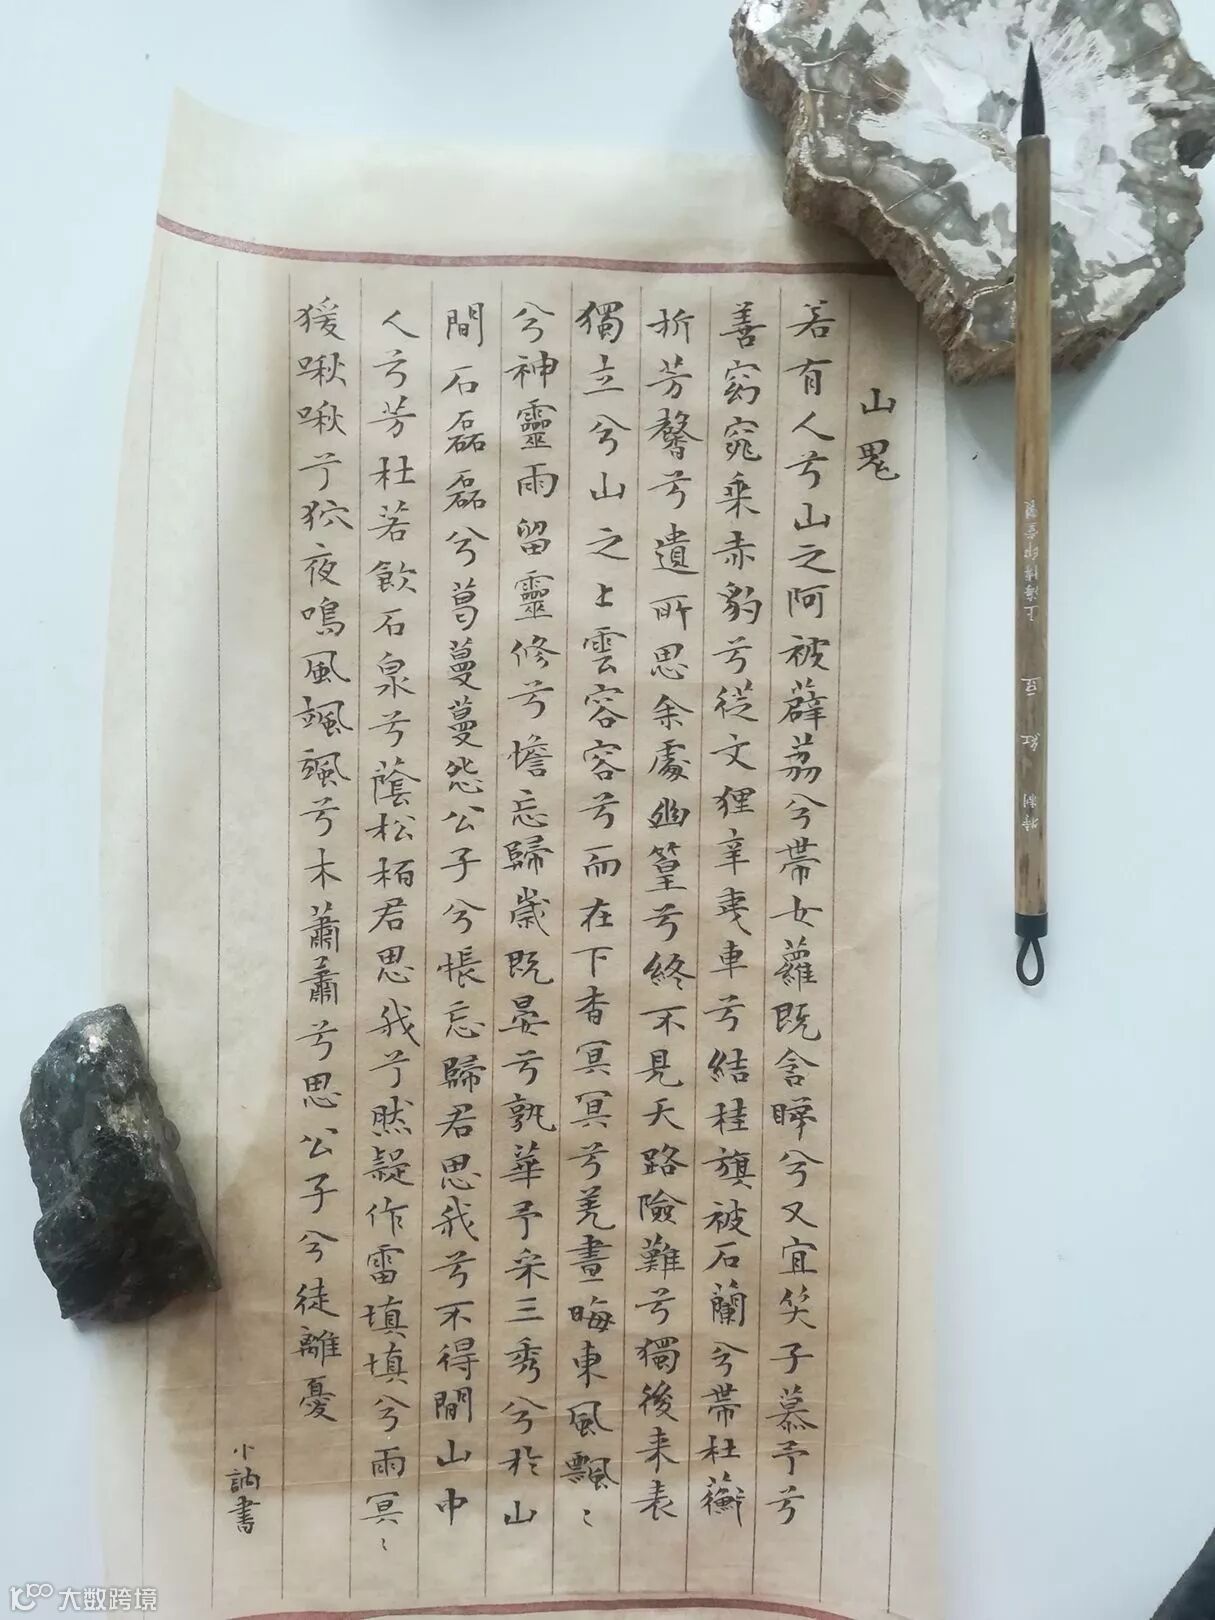 山鬼
若有人兮山之阿被薜荔兮帶女蘿既含睇兮又宜笑子慕予兮
善窈窕乘赤豹兮從文狸辛夷車兮結桂旗被石蘭兮帶杜蘅
折芳馨兮遺所思余處幽篁兮終不見天路險難兮獨後来表
獨立兮山之上雲容容兮而在下杳冥冥兮羌晝晦東風飄〻
兮神靈雨留靈修兮憺忘歸歲既晏兮孰華予采三秀兮於山
間石磊磊兮葛蔓蔓怨公子兮悵忘歸君思我兮不得間山中
人兮芳杜若飲石泉兮蔭松柏君思我兮然疑作雷填填兮雨冥〻
猨啾啾兮狖夜鳴風颯颯兮木蕭蕭兮思公子兮徒離憂
小訥書
特制 紅豆 上海博印堂製
大数跨境